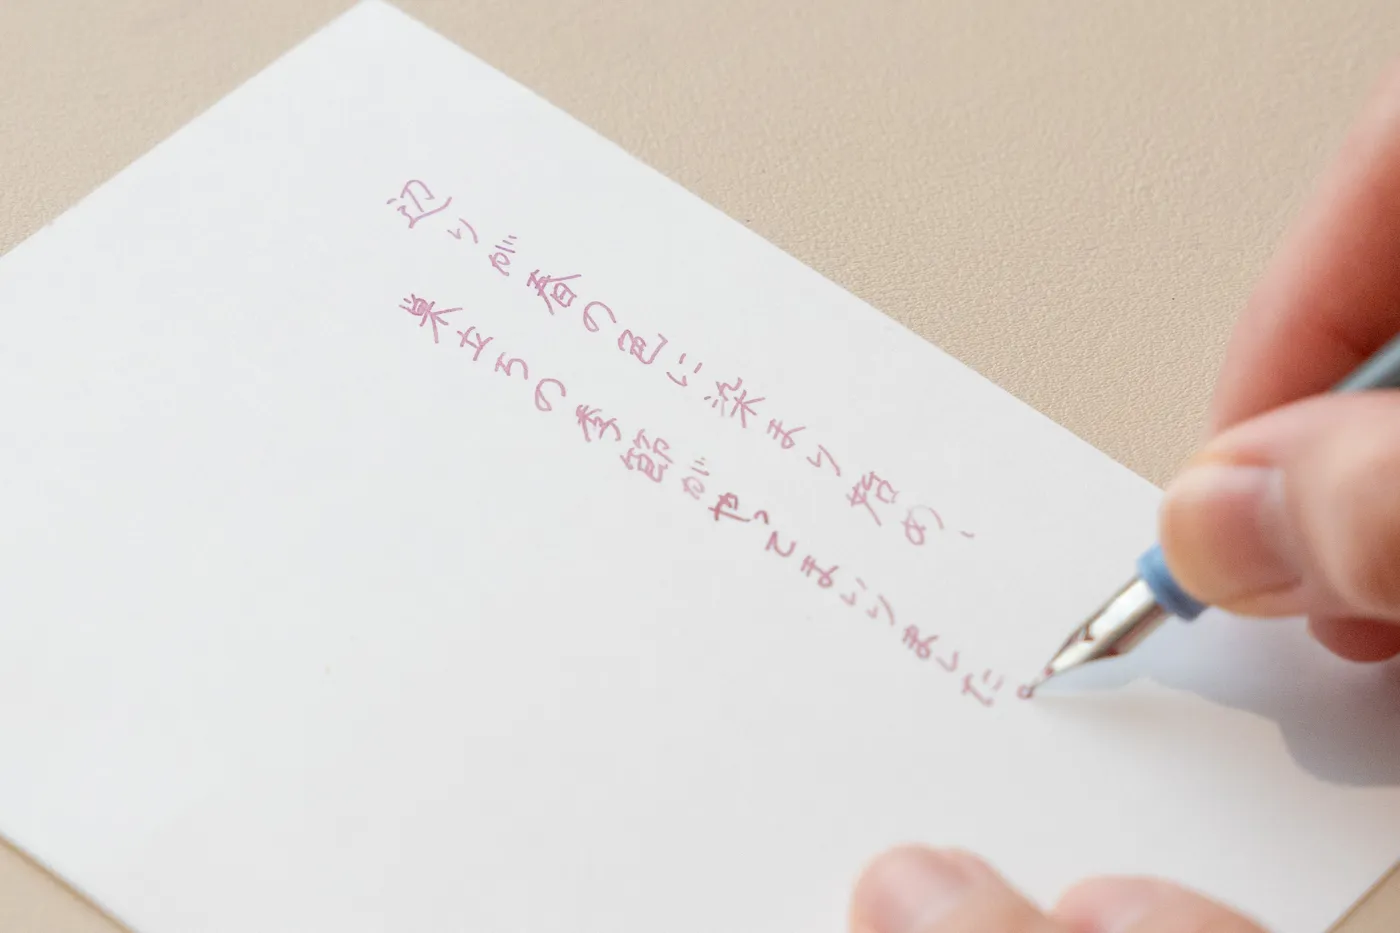 辺りが春の色に染まり始め、
巣立ちの季節がやってまいりました。